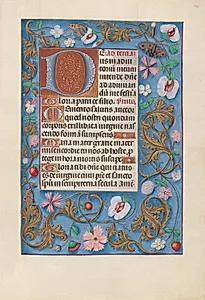 Ad
Deus in adiu
torium meum
intende
ad adiuua
me festi
Gloria patri et filio
salutis auctor
quondam
corporis ex illibata uirgine nas
cendo formam sumpseris
Maria mater gratie mater
misericordie tu nos ab hoste p
tege in hora mortis suscipe
Gloria tibi dñe qui natus
es de uirgine cum pre et sancto
spū in sempiterna secula Amē